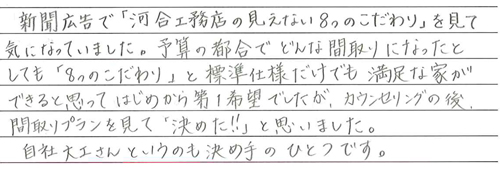 新聞広告で「河合工務店の見えない8つのこだわり」を見て
気になっていました。予算の都合でどんな間取りになったと
しても「8つのこだわり」と標準仕様だけでも満足な家が
できると思ってはじめから第1希望でしたが、カウンセリングの後、
間取りプランを見て「決めた!!」と思いました。
自社大工さんというのも決め手のひとつです。